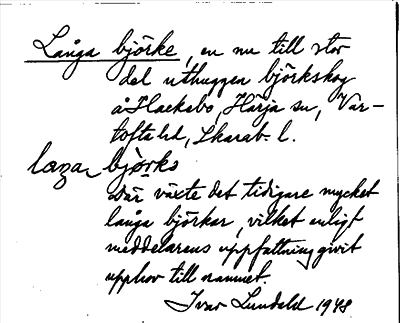 Långa björke, en nu till stor
del uthuggen björkskog
å Hackebo, Härja sn, Var-
tofta hd, Skarab. l.
laŋa björks
Där växte det tidigare mycket
långa björkar, vilket enligt
meddelarens uppfattning givit
upphov till namnet.
Ivar Lundahl 1948